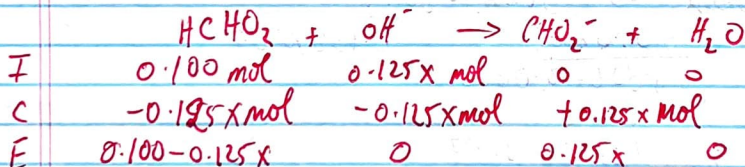 HCHO₂ + OH⁻ → CHO₂⁻ + H₂O
I 0.100 mol 0.125x mol 0 0
C -0.125x mol -0.125x mol +0.125x mol
E 0.100-0.125x 0 0.125x 0